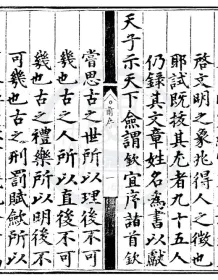 啓文明之象兆得人之徵也
耶試既拔其尤者九十五人
仍録其文章姓名為書以獻
天子示天下僉謂欽宜序諸首欽
前序
一
嘗思古之世所以理後不可
幾也古之人所以直後不可
幾也古之禮樂所以明後不
可幾也古之刑罰賦斂所以